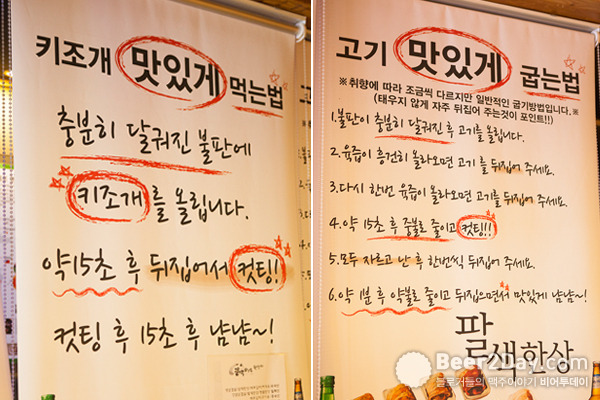 키조개 맛있게 먹는법
충분히 달궈진 불판에
키조개를 올립니다.
약15초 후 뒤집어서 컷팅!
컷팅 후 15초 후 냠냠~!
고기 맛있게 굽는법
※취향에 따라 조금씩 다르지만 일반적인 굽기방법입니다.※
(태우지 않게 자주 뒤집어 주는것이 포인트!!)
1.불판이 충분히 달궈진 후 고기를 올립니다.
2.육즙이 흥건히 올라오면 고기를 뒤집어 주세요.
3.다시 한번 육즙이 올라오면 고기를 뒤집어 주세요.
4.약 15초 후 중불로 줄이고 컷팅!!
5.모두 자르고 난 후 한번씩 뒤집어 주세요.
6.약 1분 후 약불로 줄이고 뒤집으면서 맛있게 냠냠~!
팔색한상
Beer2Day.com
블로거들의 맥주이야기 비어투데이